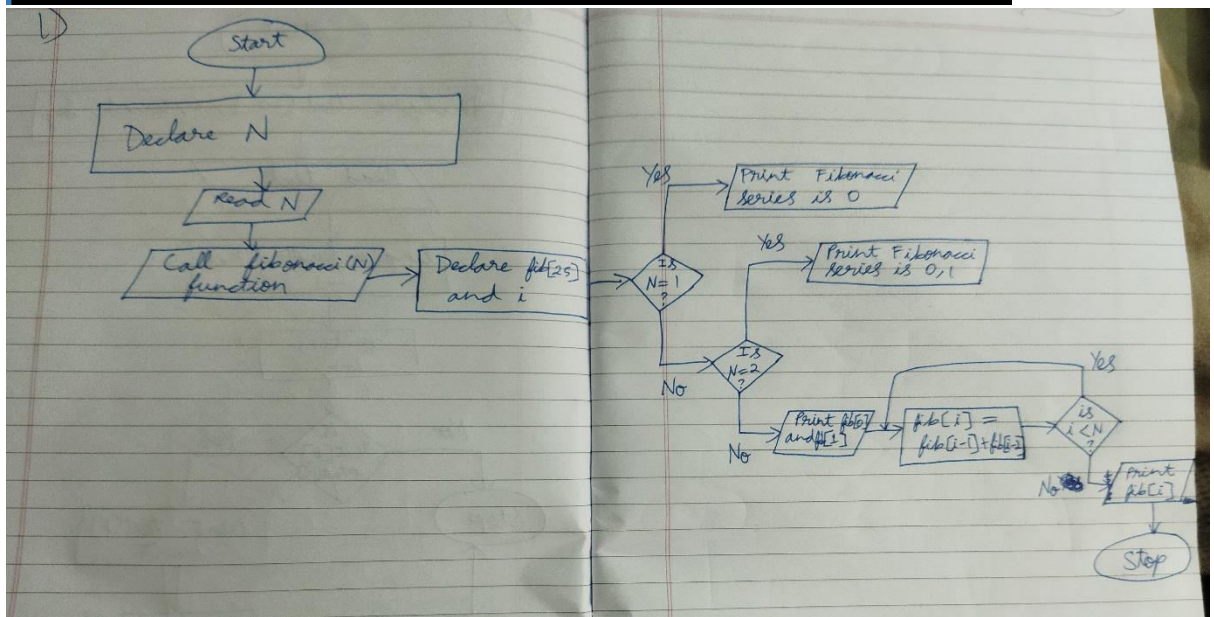 1)
Start
Declare N
Read N
Call fibonacci(N)
function
Declare fib[25]
and i
Is
N=1
?
Yes
Print Fibonacci
series is 0
No
Is
N=2
?
Yes
Print Fibonacci
series is 0,1
No
Print fib[0]
and fib[1]
fib[i] =
fib[i-1]+fib[i-2]
is
i<N
?
Yes
No
Print
fib[i]
Stop